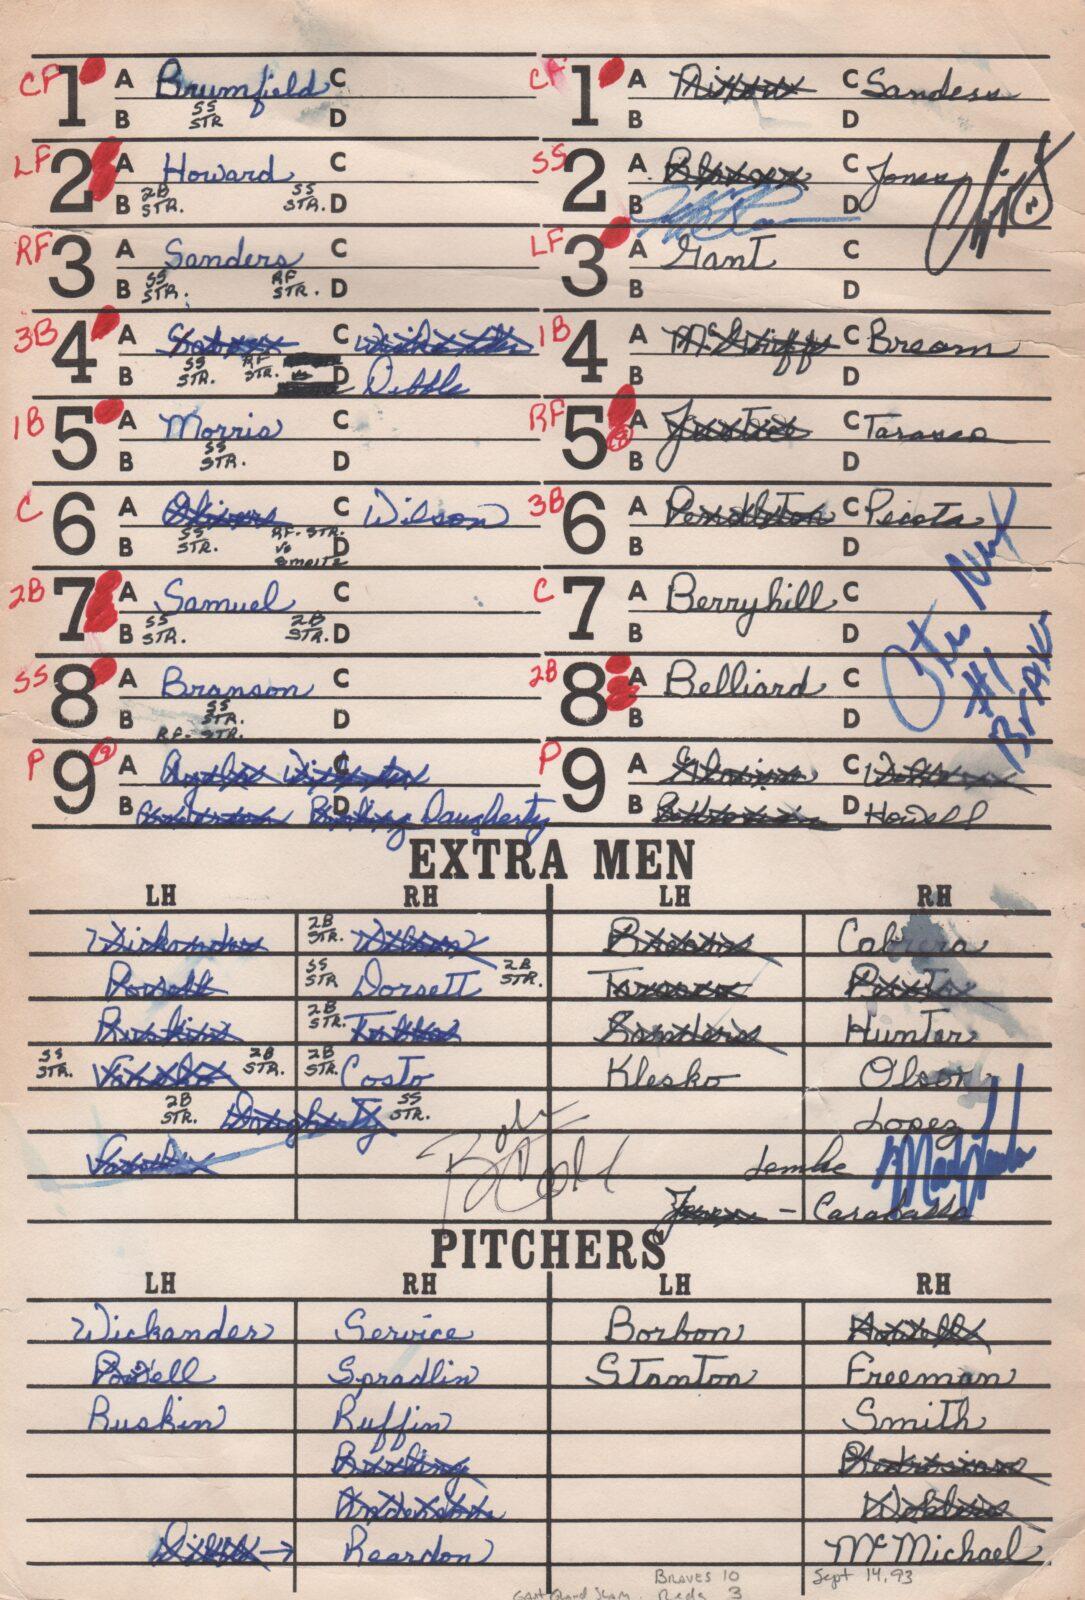 CF 1 A Brumfield C
B SS STR D
LF 2 A Howard C
B 2B STR. SS STR. D
RF 3 A Sanders C
B SS STR. RF STR. D
3B 4 A C
B SS STR. RF STR. vs D Dibble
1B 5 A Morris C
B SS STR. D
C 6 A Oliver C Wilson
B SS STR. RF. STR. vs Smoltz D
2B 7 A Samuel C
B SS STR. 2B STR. D
SS 8 A Branson C
B SS STR. RF. STR. D
P 9 (9) A C
B D Daugherty
CF 1 A Nixon C Sanders
B D
SS 2 A Blauser C Jones
B D
LF 3 A Gant C
B D
1B 4 A McGriff C Bream
B D
RF 5 (9) A Justice C Tarasco
B D
3B 6 A Pendleton C Pecota
B D
C 7 A Berryhill C
B D
2B 8 A Belliard C
B D
P 9 A C
B D Howell
#1
EXTRA MEN
LH RH LH RH
Wickander 2B STR. Wilson Bream Cabrera
Powell SS STR Dorsett 2B STR. Tarasco Pecota
Ruskin 2B STR. Sanders Hunter
SS STR. 2B STR. 2B STR. Costo Klesko Olson
2B STR. Daugherty SS STR. Lopez
Lemke
Jones - Caraballo
PITCHERS
LH RH LH RH
Wickander Service Borbon Howell
Powell Spradlin Stanton Freeman
Ruskin Ruffin Smith
Bushing Bedrosian
Anderson Wohlers
Dibble → Reardon McMichael
BRAVES 10 Sept 14, 93
Gant Grand Slam. Reds 3